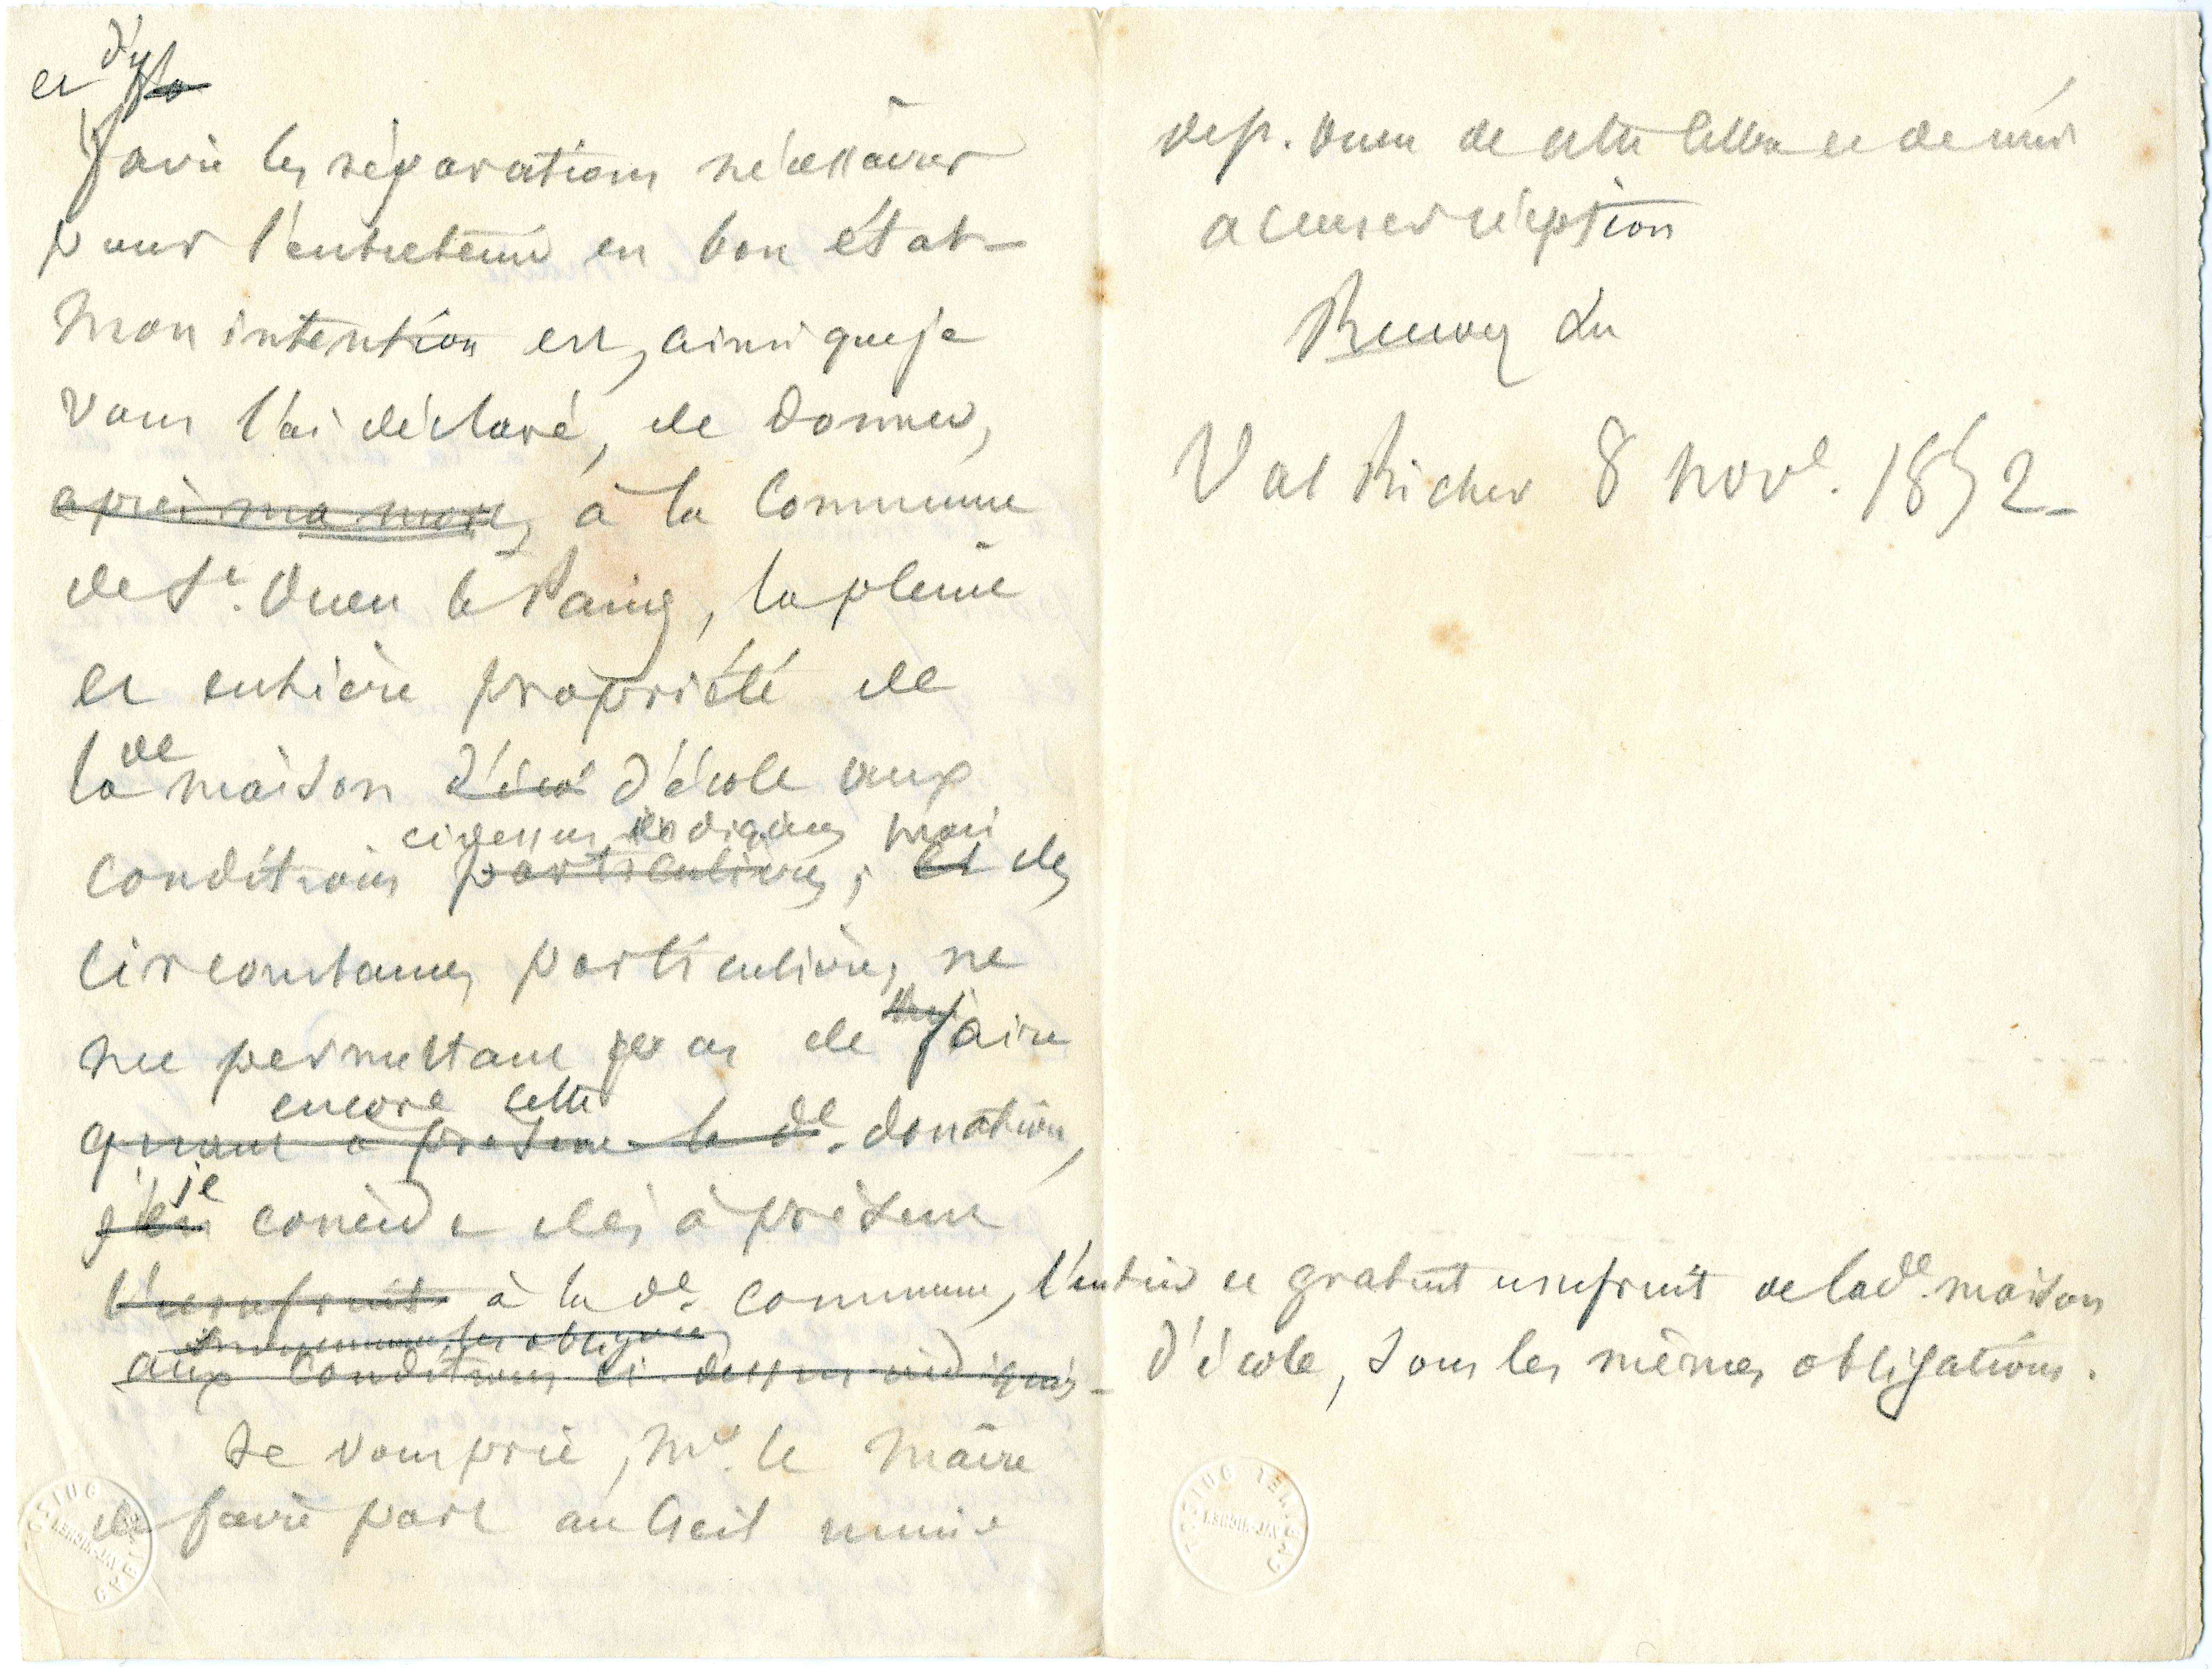 et d'y
faire les réparations nécessaires
pour l'entretenir en bon état
Mon intention est, ainsi que je
vous l'ai déclaré, de donner,
après ma mort, à la Commune
de St. Ouen le Paing, la pleine
et entière propriété de
la de maison d'éco d'école aux
ci dessus indiquées mais
conditions particulières, et des
circonstances particulières ne
me permettant pas de faire
encore cette
quant à présent la de. donation,
j'en je concède dès à présent
l'usufruit à la de. commune, l'entier et gratuit usufruit de la de. maison
d'école, sous les mêmes obligations.
aux conditions ci dessus indiquées
Je vous prie, Mr. le Maire
de faire part au Cseil munic
de St. Ouen de cette lettre et de m'en
accuser réception
Recevez &a
Val Richer 8 nove. 1852